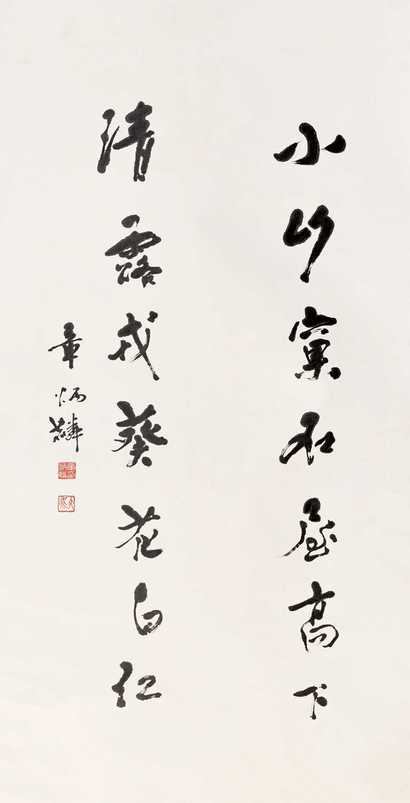 小竹窠石屋高下
清露戎葵花白紅
章炳麟